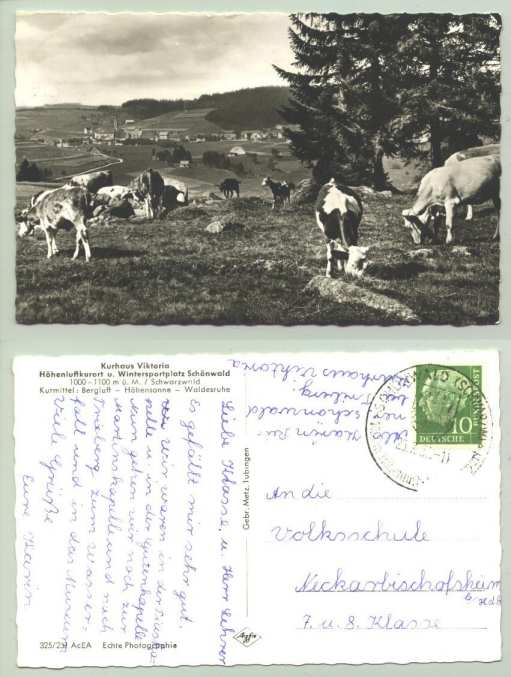 Kurhaus Viktoria
Höhenluftkurort u. Wintersportplatz Schönwald
1000-1100 m ü. M. / Schwarzwald
Kurmittel: Bergluft - Höhensonne - Waldesruhe
Liebe Klasse, u. Herr Lehrer
Es gefällt mir sehr gut.
wir waren in der
pelle u. in der Gutenkapelle
Nun gehen wir noch zur
Martinskapelle und nach
Triberg zum Wasser-
fall und in das Museum
Viele Grüße
Eure Karin
325/251 AcEA Echte Photographie
Gebr. Metz, Tübingen
Agfa
Karin
Schönwald
bei Triberg.
Kurhaus Viktoria
SCHÖNWALD (SCHWARZWALD)
10
DEUTSCHE BUNDESPOST
An die
Volksschule
Neckarbischofsheim
b/Hdbg
7. u. 8. Klasse